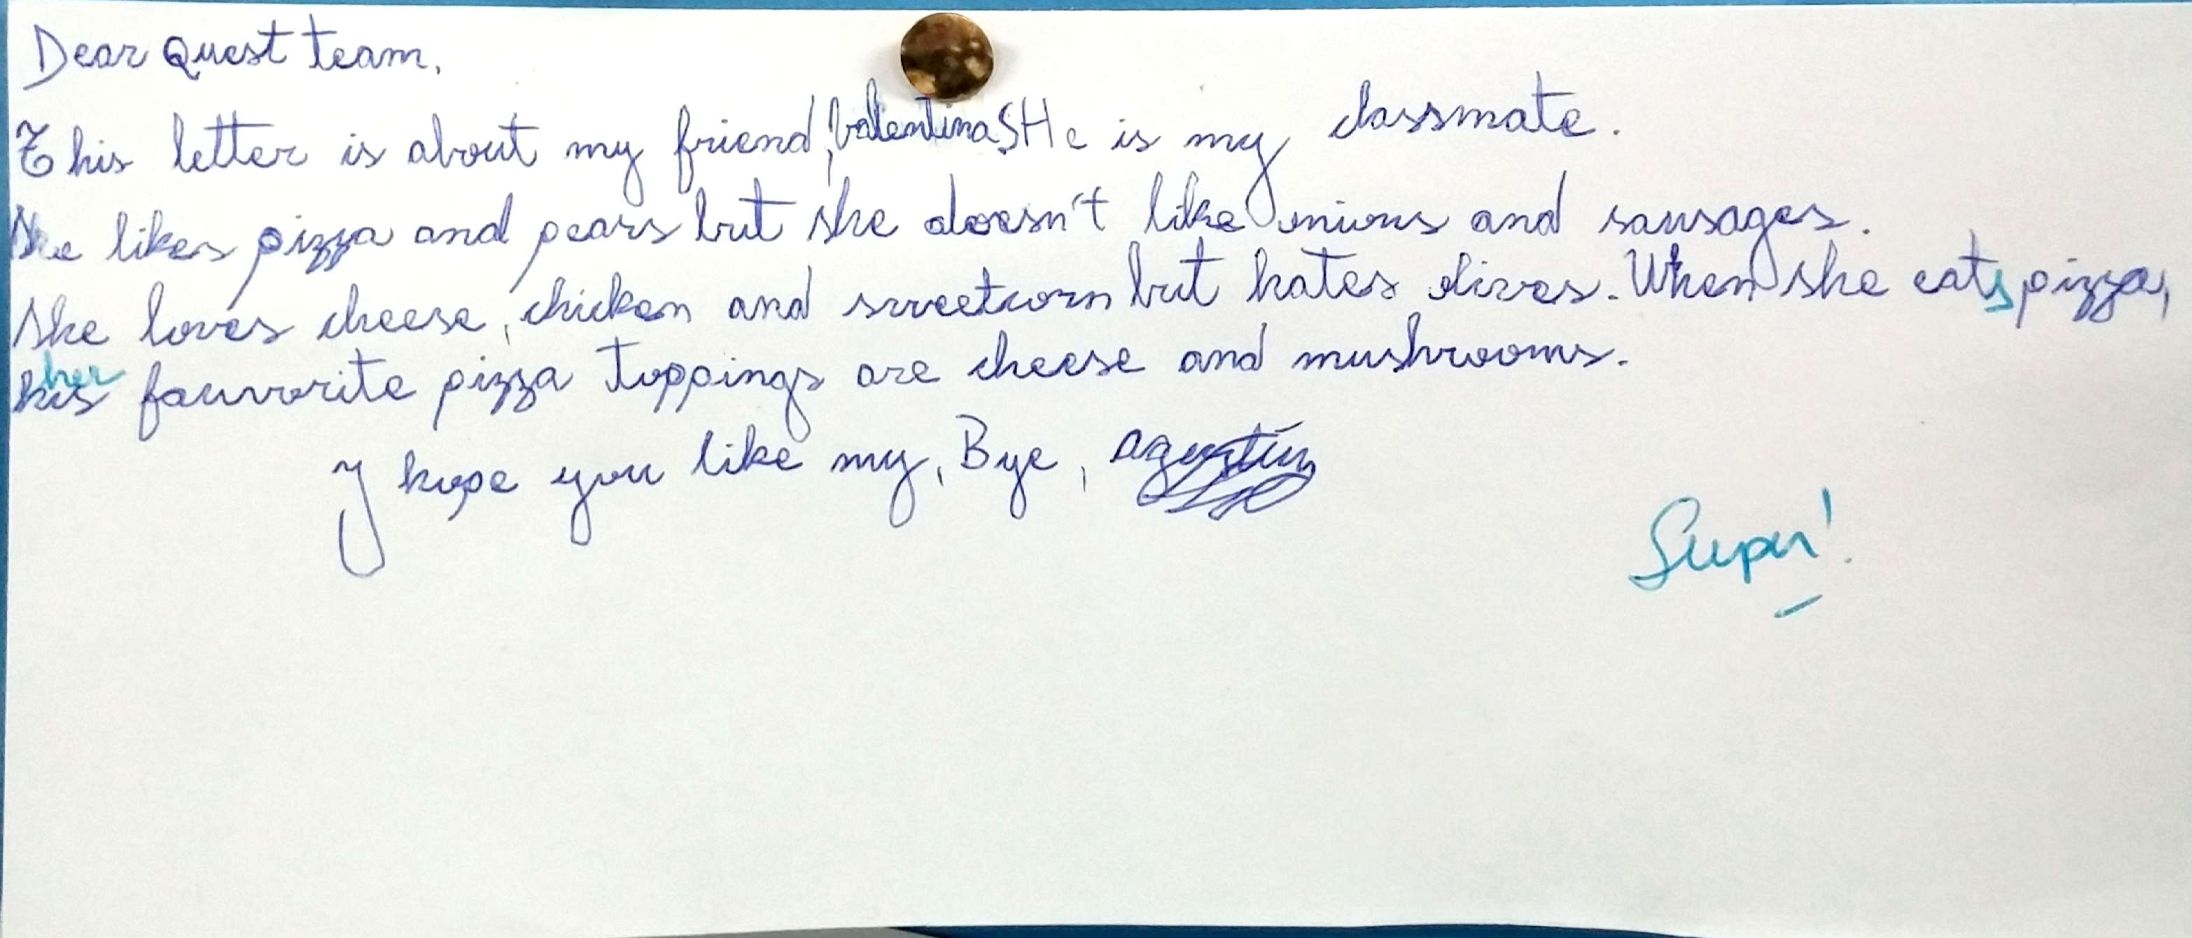 Dear Quest team,
This letter is about my friend, Valentina SHe is my classmate.
She likes pizza and pears but she doesn't like onions and sausages.
She loves cheese, chicken and sweetcorn but hates olives. When she eats pizza,
her
his fauvorite pizza toppings are cheese and mushrooms.
I hope you like my, Bye, agustín
Super!